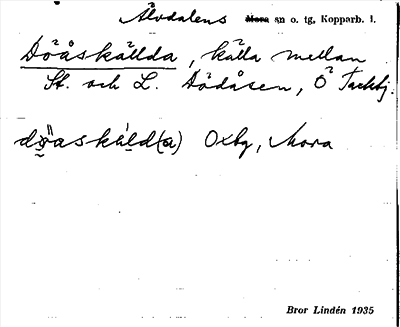 Älvdalens Mora sn o. tg, Kopparb. l.
Döåskällda, källa mellan
St. och L. Dödåsen, Ö Tackbj.
Oxbg, Mora
Bror Lindén 1935